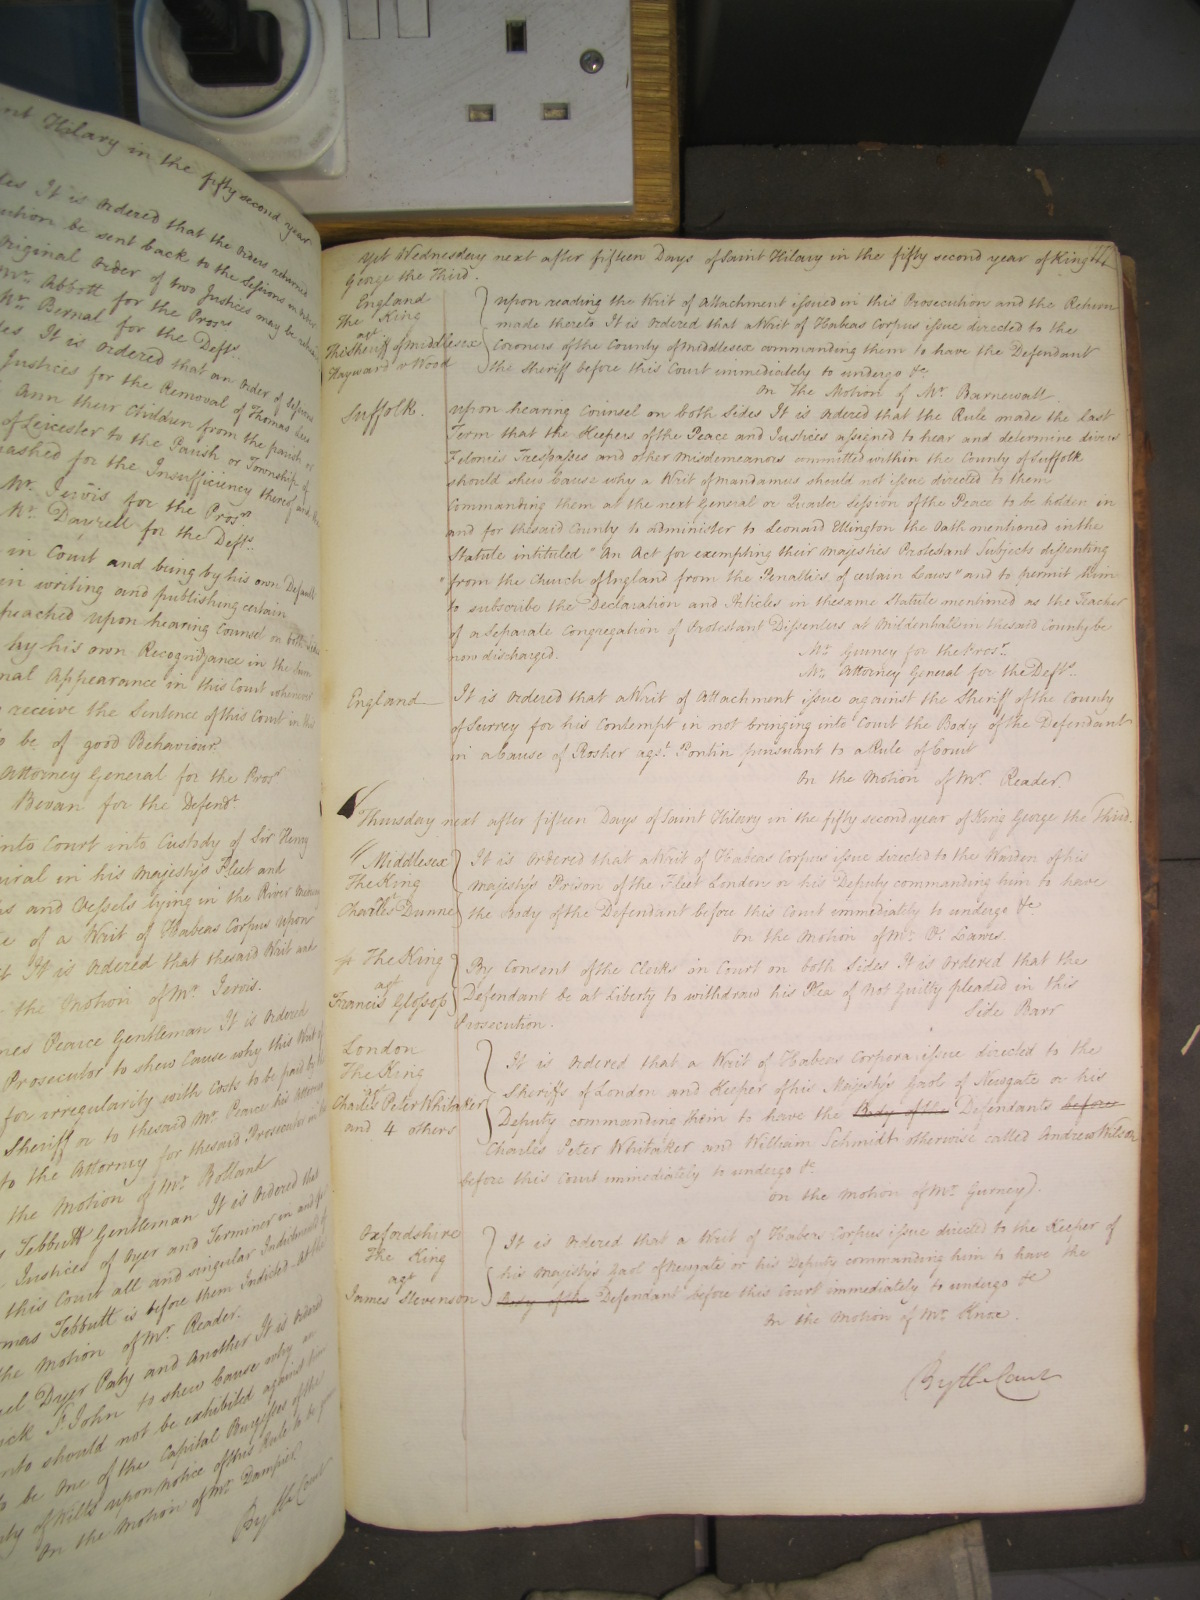 nt Hilary in the fifty second year
des It is Ordered that the Orders returned
be sent back to the Sessions
Original Order of two Justices may be
Mr. Abbott for the Prors
Mr. Bernal for the Defts.
des It is Ordered that an Order of Sessions
Justices for the Removal of Thomas
Ann their Children from the parish of
of Leicester to the Parish or Township of
uashed for the Insufficiency thereof and the
Mr. Jervis for the Prosrs
Mr. Dayrell for the Defts.
in Court and being by his own Default
in writing and publishing certain
peached upon hearing Counsel on both Sides
by his own Recognizance in the Sum
nal Appearance in this Court whenever
receive the Sentence of this Court in this
o be of good Behaviour
Attorney General for the Prosr
Bevan for the Defendt
into Court into Custody of Sir Henry
miral in his Majesty's Fleet and
ps and Vessels lying in the River Medway
e of a Writ of Habeas Corpus upon
It is Ordered that the said Writ and
the Motion of Mr. Jervis.
mes Pearce Gentleman It is Ordered
Prosecutor to shew Cause why this Writ
for irregularity with Costs to be paid by the
Sheriff or to the said Mr. Pearce his Attorney
to the Attorney for the said Prosecutor
the Motion of Mr. Bolland
Tebbutt Gentleman It is Ordered that
Justices of Oyer and Terminer in and for
this Court all and singular Indictments
mas Tebbutt is before them Indicted
the Motion of Mr. Reader.
uel Dyer Paty and Another It is Ordered
ick St. John to shew Cause why an
nto should not be exhibited against him
o be One of the Capital Burgesses of the
ty of Wilts upon Notice of this Rule to be given
On the Motion of Mr. Dampier.
By the Court
Yet Wednesday next after fifteen Days of Saint Hilary in the fifty second year of King
George the Third.
England
The King
agt
The Sheriff of Middlesex
Hayward v Wood
Upon reading the Writ of Attachment issued in this Prosecution and the Return
made thereto It is Ordered that a Writ of Habeas Corpus issue directed to the
Coroners of the County of Middlesex commanding them to have the Defendant
the Sheriff before this Court immediately to undergo &c
On the Motion of Mr. Barnewall.
Suffolk.
Upon hearing Counsel on both Sides It is Ordered that the Rule made the last
Term that the Keepers of the Peace and Justices assigned to hear and determine divers
Felonies Trespasses and other Misdemeanors committed within the County of Suffolk
should shew Cause why a Writ of Mandamus should not issue directed to them
Commanding them at the next General or Quarter Session of the Peace to be holden in
and for the said County to administer to Leonard Ellington the Oath mentioned in the
Statute intituled "An Act for exempting their Majesties Protestant Subjects dissenting
"from the Church of England from the Penalties of certain Laws" and to permit him
to subscribe the Declaration and Articles in the same Statute mentioned as the Teacher
of a Separate Congregation of Protestant Dissenters at Mildenhall in the said County be
now discharged.
Mr. Gurney for the Prosr.
Mr. Attorney General for the Defts.
England
It is Ordered that a Writ of Attachment issue against the Sheriff of the County
of Surrey for his Contempt in not bringing into Court the Body of the Defendant
in a Cause of Rosher agst. Pontin pursuant to a Rule of Court
On the Motion of Mr. Reader.
Thursday next after fifteen Days of Saint Hilary in the fifty second year of King George the Third.
Middlesex
The King
agt
Charles Dunne
It is Ordered that a Writ of Habeas Corpus issue directed to the Warden of his
Majesty's Prison of the Fleet London or his Deputy commanding him to have
the Body of the Defendant before this Court immediately to undergo &c
On the Motion of Mr. V. Lawes.
The King
agt
Francis Glossop
By Consent of the Clerks in Court on both Sides It is Ordered that the
Defendant be at Liberty to withdraw his Plea of Not Guilty pleaded in this
Prosecution.
Side Barr
London
The King
agt
Charles Peter Whitaker
and 4 others
It is Ordered that a Writ of Habeas Corpora issue directed to the
Sheriffs of London and Keeper of his Majesty's Gaol of Newgate or his
Deputy commanding him to have the Body of the Defendants before
Charles Peter Whitaker and William Schmidt otherwise called Andrew Wilson
before this Court immediately to undergo &c.
On the Motion of Mr. Gurney.
Oxfordshire
The King
agt
James Stevenson
It is Ordered that a Writ of Habeas Corpus issue directed to the Keeper of
his Majesty's Gaol of Newgate or his Deputy commanding him to have the
Body of the Defendant before this Court immediately to undergo &c
On the Motion of Mr. Knox.
By the Court